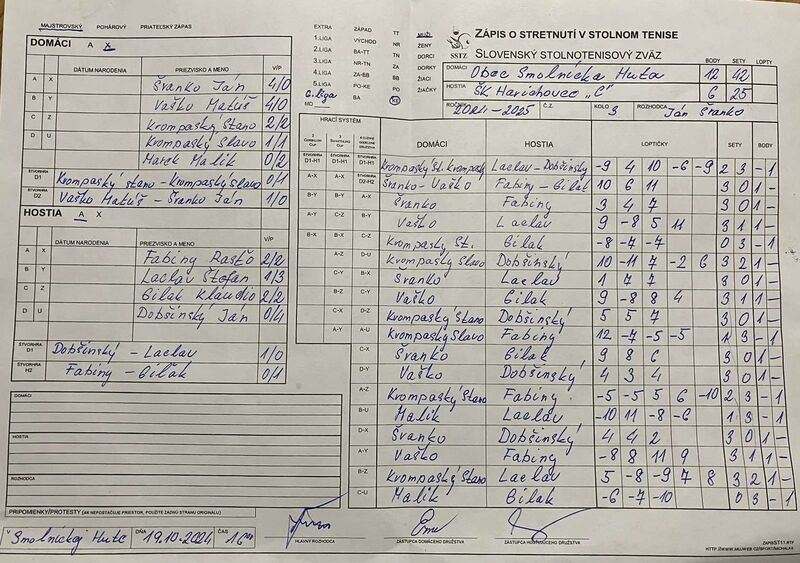 MAJSTROVSKÝ POHÁROVÝ PRIATEĽSKÝ ZÁPAS
DOMÁCI A X
DÁTUM NARODENIA PRIEZVISKO A MENO V/P
A X Švanko Ján 4/0
B Y Vaško Matúš 4/0
C Z Krompaský Stano 2/2
D U Krompaský Slavo 1/1
Marek Malik 0/2
ŠTVORHRA D1 Krompaský Stano - Krompaský Slavo 0/1
ŠTVORHRA D2 Vaško Matúš - Švanko Ján 1/0
HOSTIA A X
DÁTUM NARODENIA PRIEZVISKO A MENO V/P
A X Fabiny Rasťo 2/2
B Y Laclav Štefan 1/3
C Z Bilak Klaudio 2/2
D U Dobšinský Ján 0/4
ŠTVORHRA D1 Dobšinský - Laclav 1/0
ŠTVORHRA H2 Fabiny - Biľak 0/1
DOMÁCI
HOSTIA
ROZHODCA
PRIPOMIENKY/PROTESTY (AK NEPOSTAČUJE PRIESTOR, POUŽITE ZADNÚ STRANU ORIGINÁLU)
V Smolníckej Hute DŇA 19.10.2024 ČAS 16 00
HLAVNÝ ROZHODCA
ZÁSTUPCA DOMÁCEHO DRUŽSTVA
ZÁSTUPCA HOSŤUJÚCEHO DRUŽSTVA
EXTRA ZÁPAD TT MUŽI
1.LIGA VÝCHOD NR ŽENY
2.LIGA BA-TT TN DORCI
3.LIGA NR-TN ZA DORKY
4.LIGA ZA-BB BB ŽIACI
5.LIGA PO-KE PO ŽIAČKY
6.liga BA KE
MO
SSTZ
ZÁPIS O STRETNUTÍ V STOLNOM TENISE
SLOVENSKÝ STOLNOTENISOVÝ ZVÄZ
BODY SETY LOPTY
DOMÁCI Obec Smolnícka Huta 12 42
HOSTIA ŠK Harichovce "C" 6 25
ROČNÍK 2024-2025 Č.Z. KOLO 3 ROZHODCA Ján Švanko
HRACÍ SYSTÉM
DOMÁCI HOSTIA LOPTIČKY SETY BODY
Krompaský St. Krompaský Laclav - Dobšinský -9 4 10 -6 -9 2 3 - 1
Švanko - Vaško Fabiny - Bilak 10 6 11 3 0 1 -
Švanko Fabiny 3 4 7 3 0 1 -
Vaško Laclav 9 -8 5 11 3 1 1 -
Krompaský St. Bilak -8 -7 -7 0 3 - 1
Krompaský Slavo Dobšinský 10 -11 7 -2 6 3 2 1 -
Švanko Laclav 1 7 7 3 0 1 -
Vaško Bilak 9 -8 8 4 3 1 1 -
Krompaský Stano Dobšinský 5 5 7 3 0 1 -
Krompaský Slavo Fabiny 12 -7 -5 -5 1 3 - 1
Švanko Bilak 9 8 6 3 0 1 -
Vaško Dobšinský 4 3 4 3 0 1 -
Krompaský Stano Fabiny -5 -5 5 6 -10 2 3 - 1
Malik Laclav -10 11 -8 -6 1 3 - 1
Švanko Dobšinský 4 4 2 3 0 1 -
Vaško Fabiny -8 8 11 9 3 1 1 -
Krompaský Stano Laclav 5 -8 -9 7 8 3 2 1 -
Malik Bilak -6 -7 -10 0 3 - 1
ZAPISST11.RTF
HTTP://WWW.MUJWEB.CZ/SPORT/MICHALKA